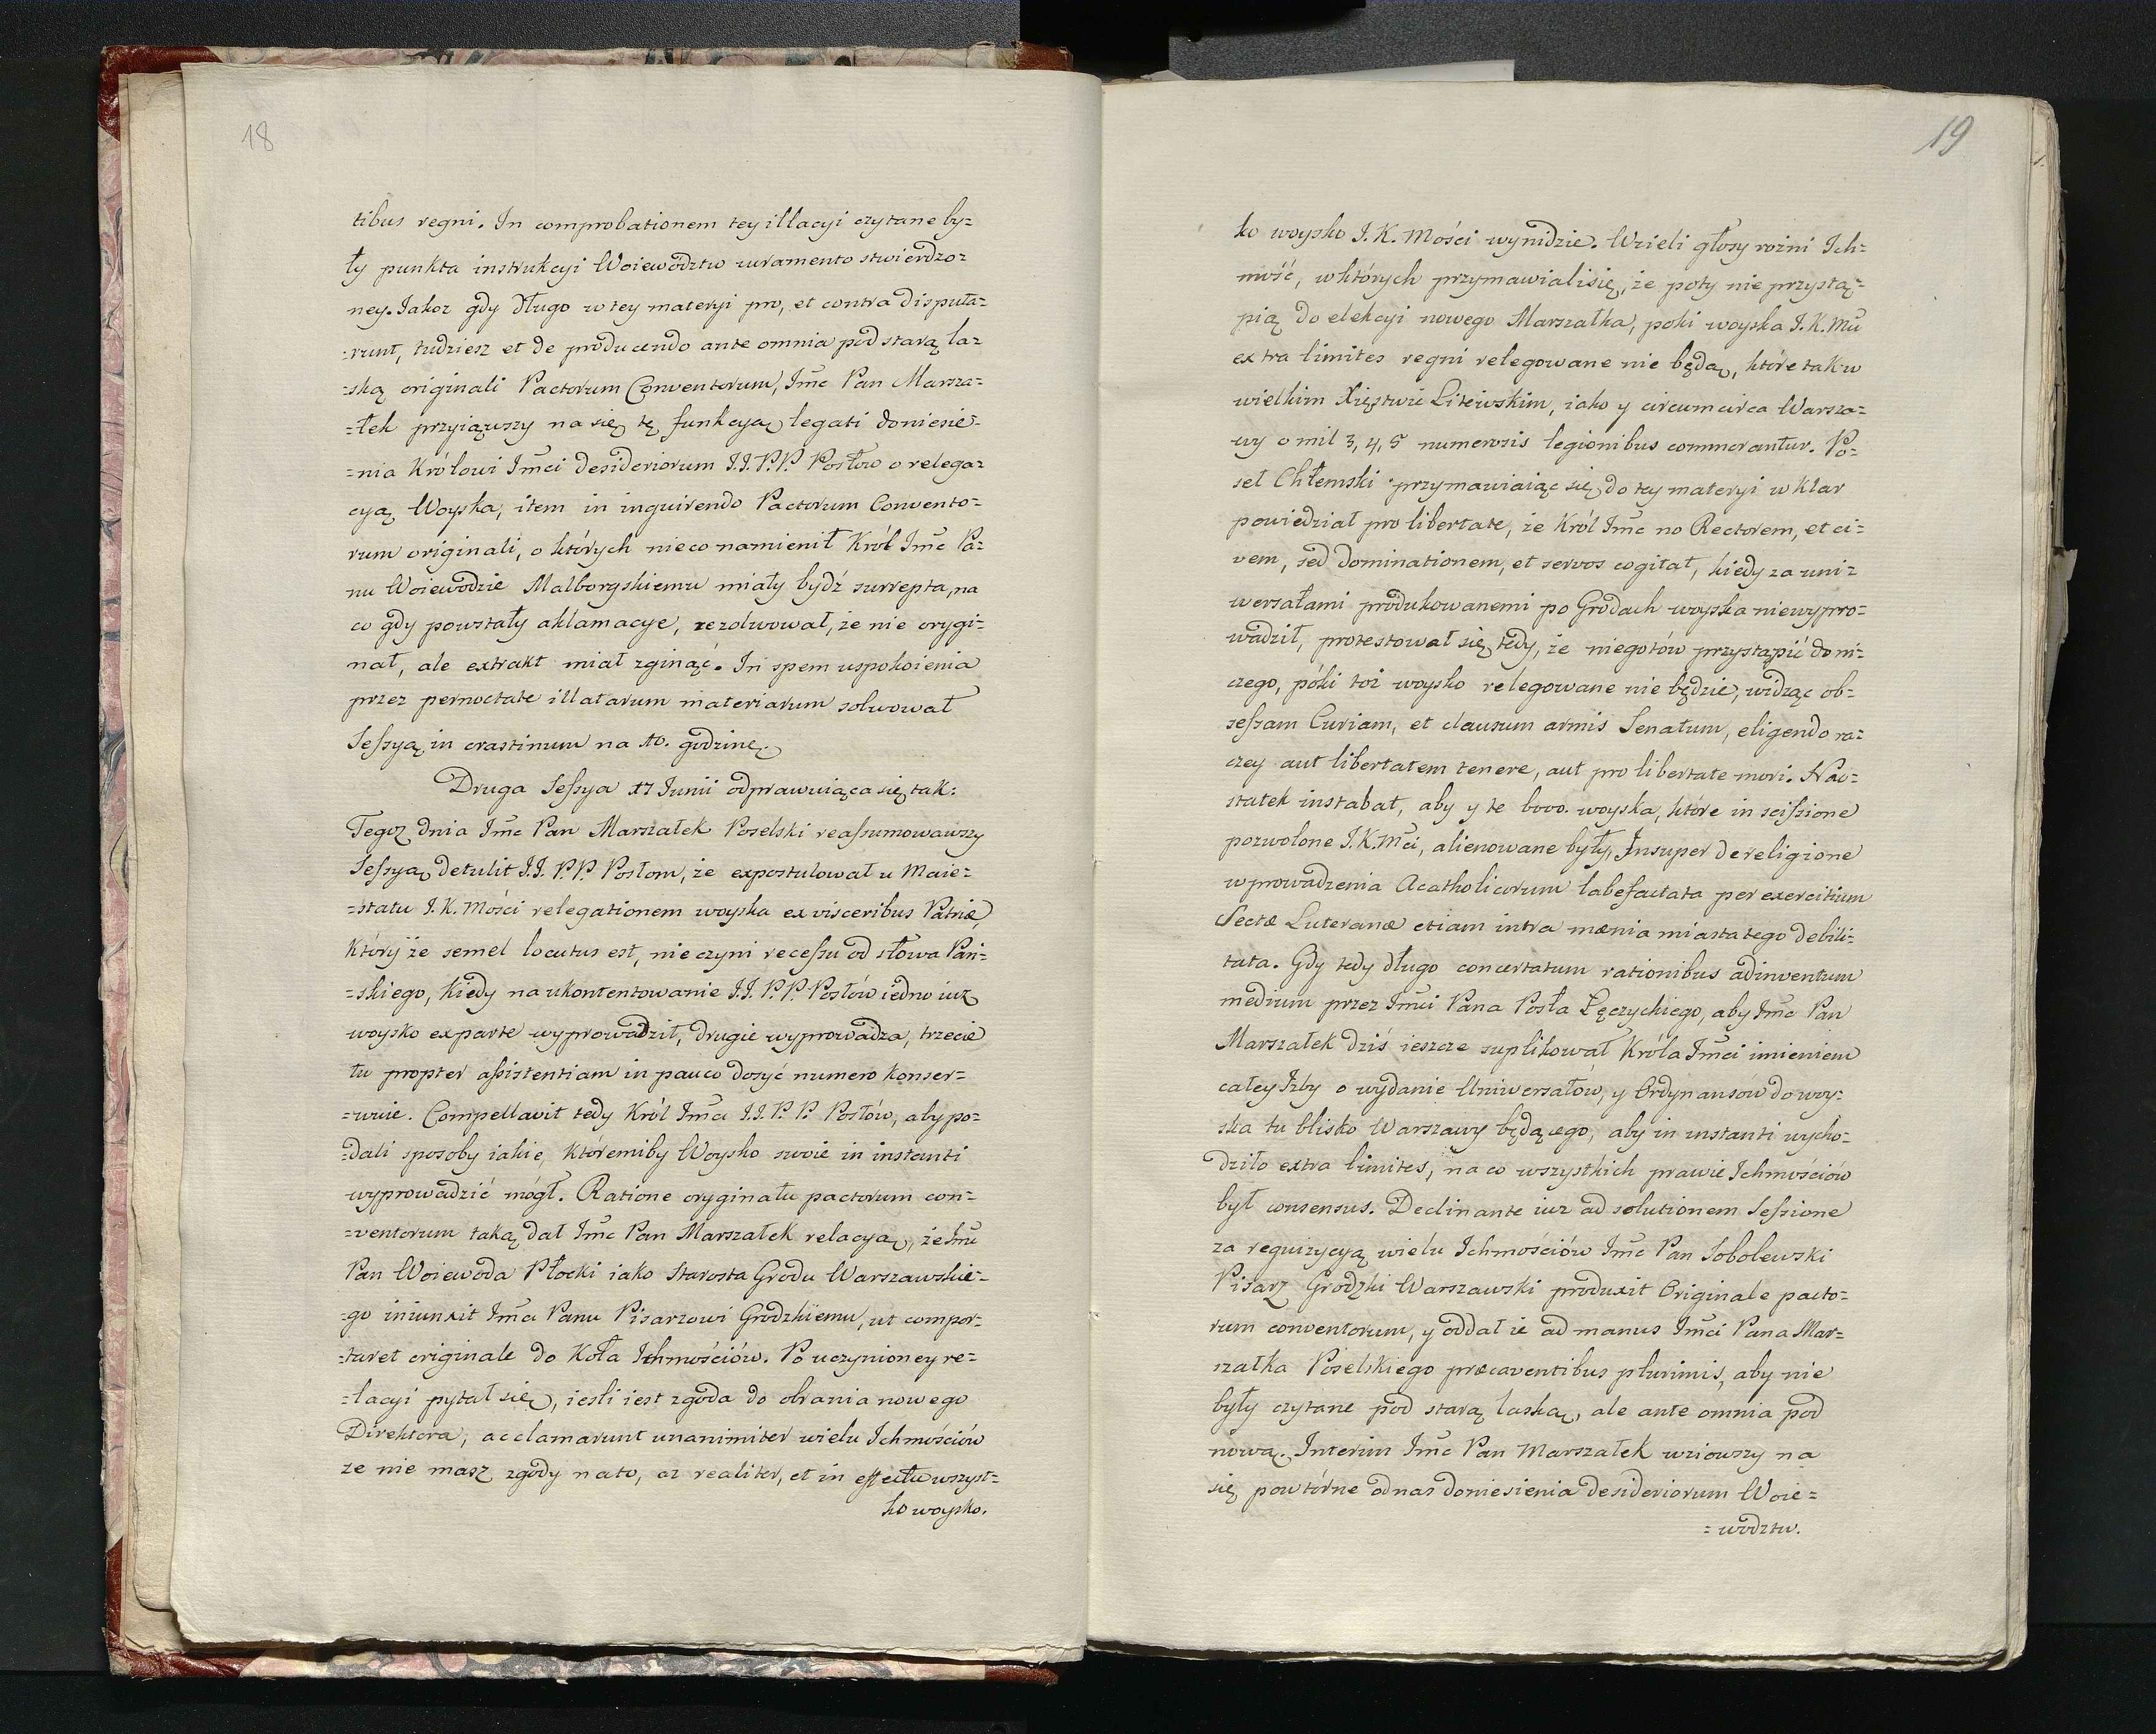 18
tibus regni. In comprobationem tey illacyi czytane by=
ły punkta instrukcyi Woiewodztw iuramento stwierdzo=
ney. Iakoz gdy długo w tey materyi pro, et contra disputa=
=runt, tudziesz et de producendo ante omnia pod starą la=
=ską originali Pactorum Conventorum, Imc Pan Marsza=
=łek przyiąwszy na się tę funkcyą legati doniesie=
=nia Królowi Imci desideriorum I.I.P.P. Posłow o relega=
cyą Woyska, item in inquirendo Pactorum Convento=
rum originali, o których nieco namienił Król Imc Pa=
nu Woiewodzie Malborgskiemu miały bydź surrepta, na
co gdy powstały aklamacye, rezolwował, że nie orygi=
nał, ale extrakt miał zginąć. In spem uspokoienia
przez pernoctate illatarum materiarum solwował
Sessyą in crastinum na 10. godzinę.
Druga Sessya 17 Iunii odprawuiąca się tak:
Tegoz dnia Imc Pan Marszałek Poselski reassumowawszy
Sessyą detulit I.I. P.P. Posłom, że expostulował u Maie=
=statu I. K. Mości relegationem woyska ex visceribus Patriæ,
Który że semel locutus est, nie czyni recessu od słowa Pań=
=skiego, Kiedy na ukontentowanie I.I. P.P. Posłów iedno iuz
woysko exparte wyprowadził, drugie wyprowadza, trzecie
tu propter assistentiam in pauco dosyć numero konser=
=wuie. Compellavit tedy Król Imci I.I. P. P. Posłów, aby po=
=dali sposoby iakie, któremiby Woysko swoie in instanti
wyprowadzić mógł. Ratione oryginału pactorum con=
=ventorum taką dał Imc Pan Marszałek relacyą, że Imć
Pan Woiewoda Płocki iako Starosta Grodu Warszawskie=
=go iniunxit Imci Panu Pisarzowi Grodzkiemu, ut compor=
=taret originale do Koła Ichmościów. Po uczynioney re=
=lacyi pytał się, iesli iest zgoda do obrania nowego
Direktora, acclamarunt unanimiter wielu Ichmościów
ze nie masz zgody na to, az realiter, et in effectu wszyst=
ko woysko.
19
ko woysko I. K. Mości wynidzie. Wzieli głosy rożni Ich=
mość, w których przymawiali się, że poty nie przystą=
pią do elekcyi nowego Marszałka, poki woyska I. K. Mci
extra limites regni relegowane nie będą, które tak w
wielkim Xięstwie Litewskim, iako y circum circa Warsza=
wy o mil 3, 4, 5 numerosis legionibus commorantur. Po=
seł Chłemski przymawiaiąc się do tey materyi w klar
powiedział pro libertate, że Król Imc no Rectorem, et ci=
vem, sed dominationem, et servos cogitat, kiedy za uni=
wersałami produkowanemi po Grodach woyska niewypro=
wadził, protestował się tedy, że niegotów przystąpić do ni=
czego, póki toż woysko relegowane nie będzie, widząc ob=
sessam Curiam, et clausum armis Senatum, eligendo ra=
czey aut libertatem tenere, aut pro libertate mori. Nao=
statek instabat, aby y te 6000. woyska, które in scissione
pozwolone I. K. Mci, alienowane były, Insuper de religione
wprowadzenia Acatholicorum labefactata per exercitium
Sectæ Luteranæ etiam intra mænia miasta tego debili=
tata. Gdy tedy długo concertatum rationibus adinventum
medium przez Imci Pana Posła Łęczyckiego, aby Imc Pan
Marszałek dziś ieszcze suplikował Króla Imci imieniem
całey Izby o wydanie Uniwersałów, y Ordynansów do woy=
ska tu blisko Warszawy będącego, aby in instanti wycho=
dziło extra limites, na co wszystkich prawie Ichmościów
był consensus. Declinante iuz ad solutionem Sessione
za requizycyą wielu Ichmościów Imc Pan Sobolewski
Pisarz Grodzki Warszawski produxit Originale pacto=
rum conventorum, y oddał ie ad manus Imci Pana Mar=
szałka Poselskiego præcaventibus plurimis, aby nie
były czytane pod starą laską, ale ante omnia pod
nową. Interim Imc Pan Marszałek wziowszy na
się powtórne od nas doniesienia desideriorum Woie=
=wodztw.